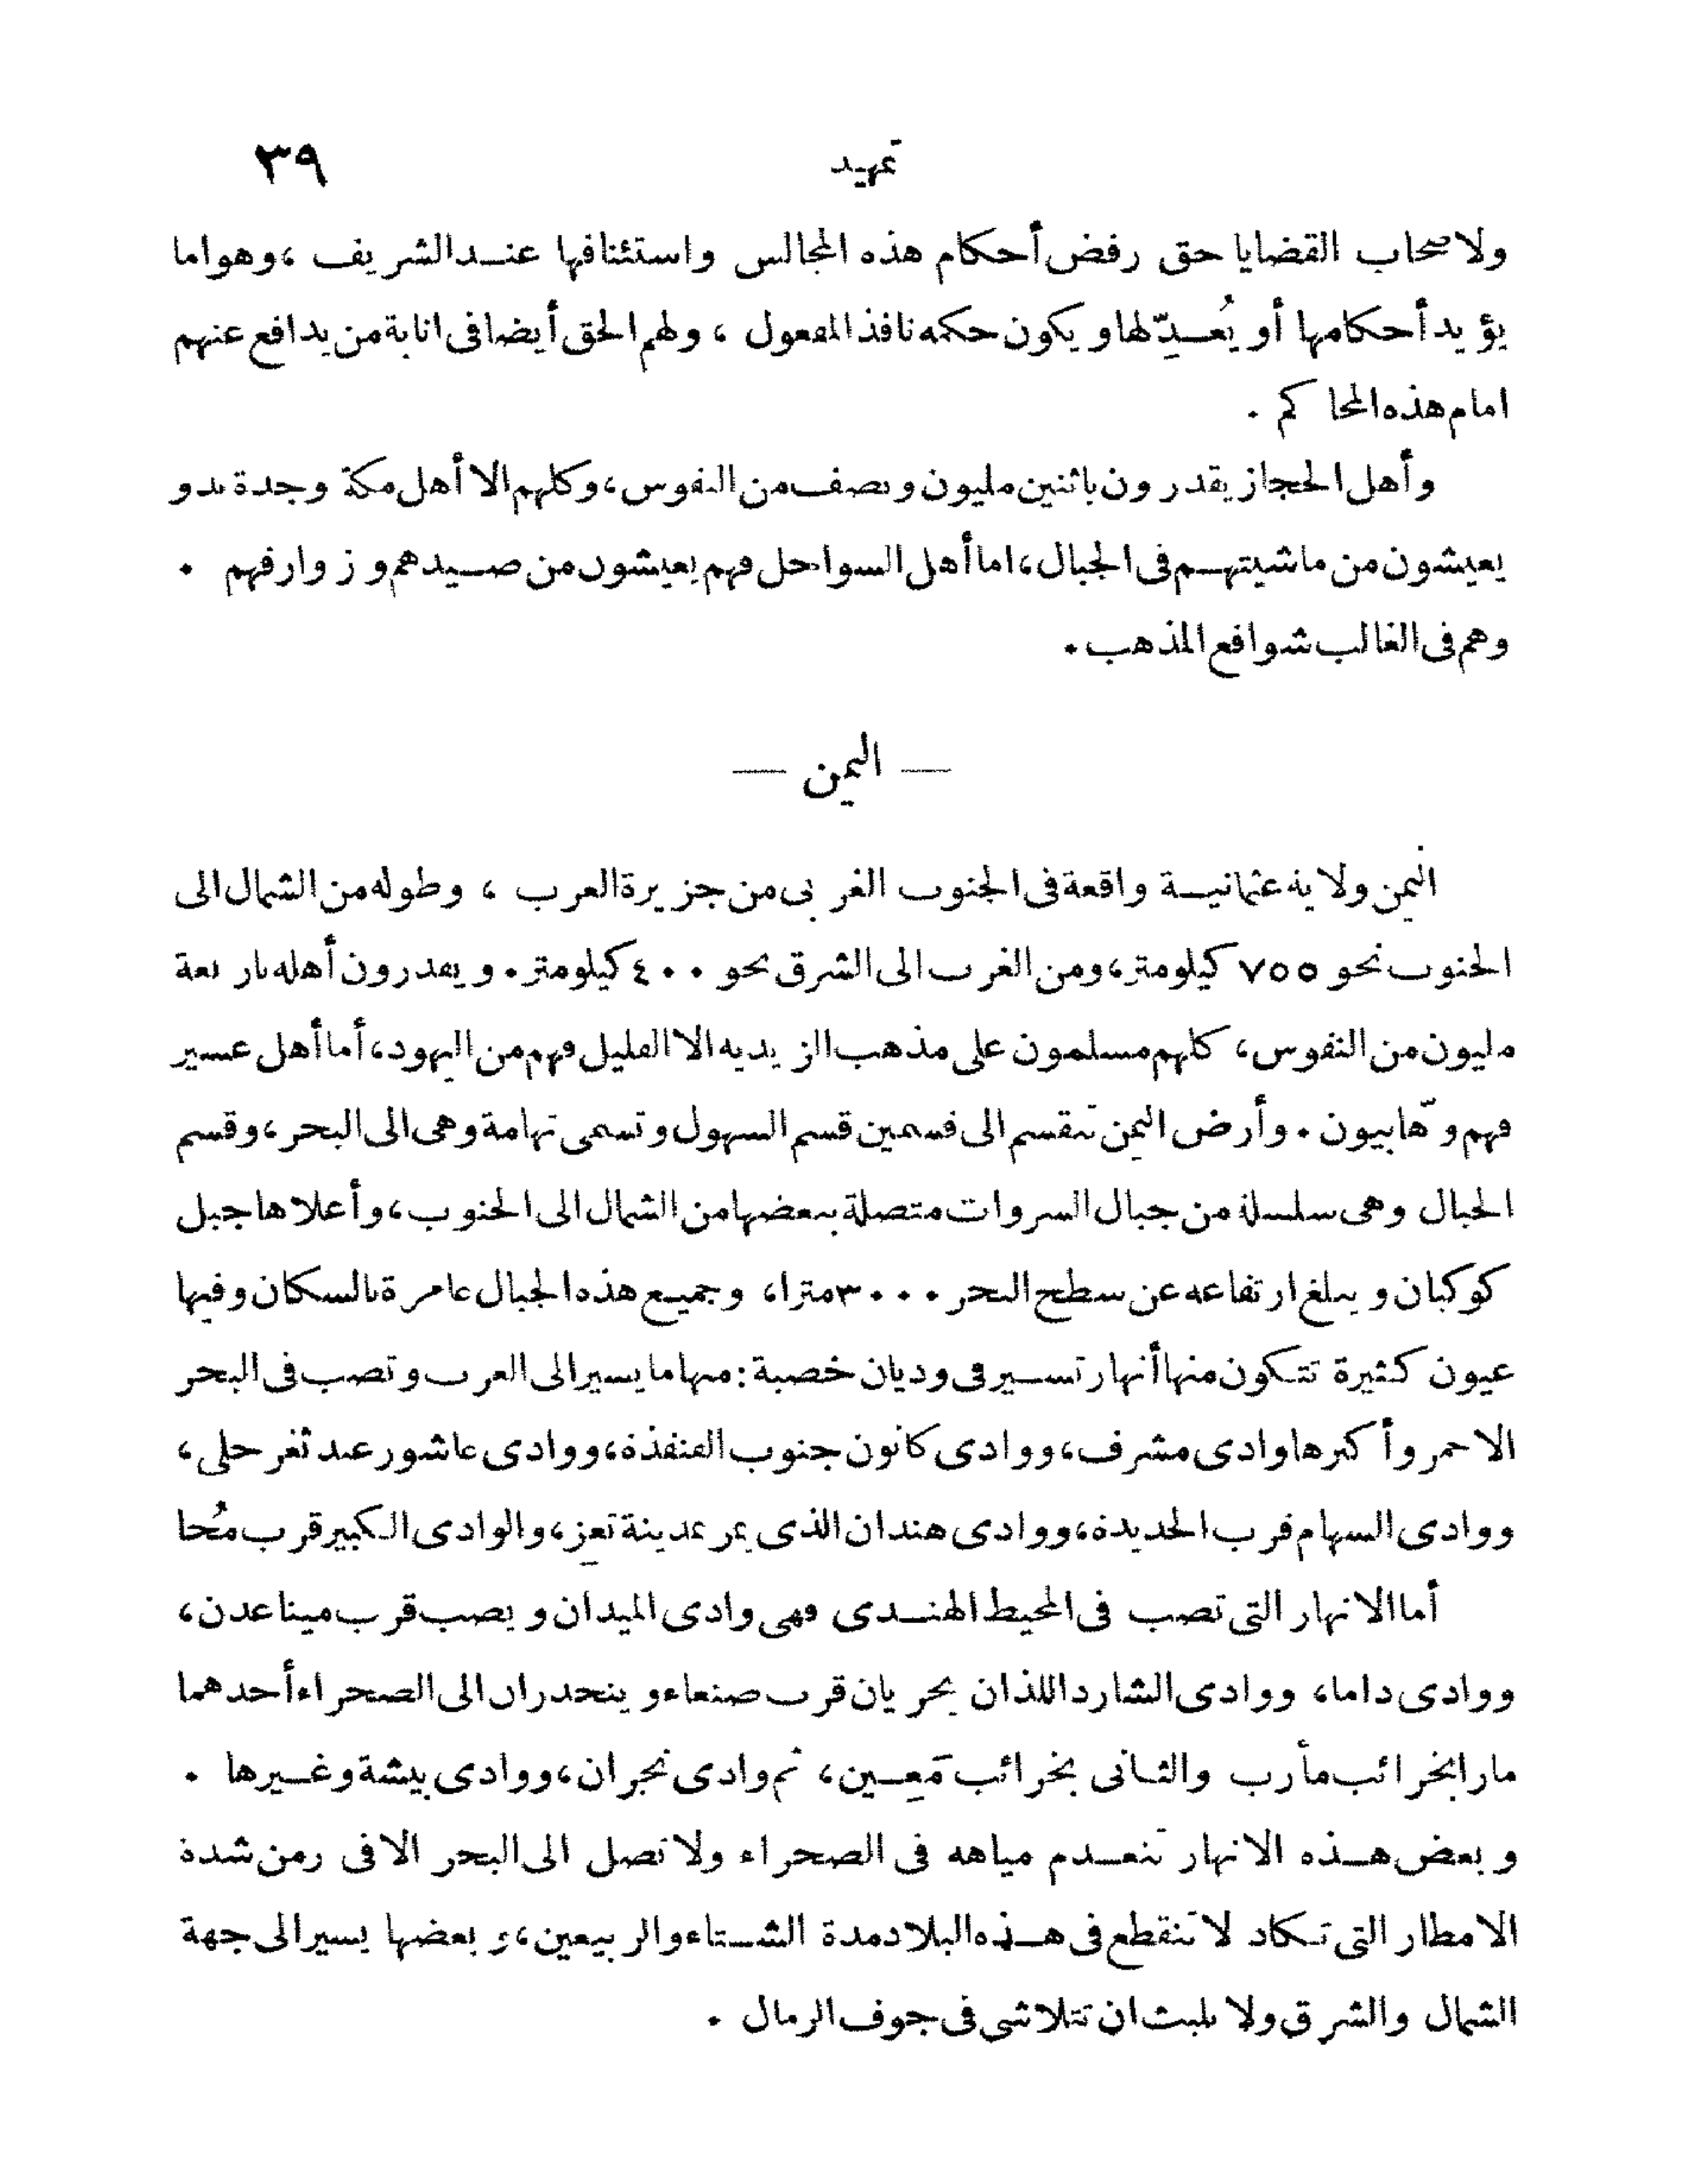 تمهيد ٣٩
ولاصحاب القضايا حق رفض أحكام هذه المجالس واستئنافها عند الشريف ، وهو اما
يؤيد أحكامها أو يُعدِّلها ويكون حكمه نافذ المفعول ، ولهم الحق أيضا فى انابة من يدافع عنهم
امام هذه المحاكم .
وأهل الحجاز يقدرون باثنين مليون ونصف من النفوس ، وكلهم الا أهل مكة وجدة بدو
يعيشون من ماشيتهم فى الجبال ، اما أهل السواحل فهم يعيشون من صيدهم وزوارفهم .
وهم فى الغالب شوافع المذهب .
— اليمن —
اليمن ولاية عثمانية واقعة فى الجنوب الغربى من جزيرة العرب ، وطوله من الشمال الى
الجنوب نحو ٧٥٥ كيلومتر ، ومن الغرب الى الشرق نحو ٤٠٠ كيلومتر . ويقدرون أهله باربعة
مليون من النفوس ، كلهم مسلمون على مذهب الزيديه الا القليل فهم من اليهود ، أما أهل عسير
فهم وهّابيون . وأرض اليمن تنقسم الى قسمين قسم السهول وتسمى تهامة وهى الى البحر ، وقسم
الجبال وهى سلسلة من جبال السروات متصلة ببعضها من الشمال الى الجنوب ، وأعلاها جبل
كوكبان ويبلغ ارتفاعه عن سطح البحر ٣٠٠٠ مترا ، وجميع هذه الجبال عامرة بالسكان وفيها
عيون كثيرة تتكون منها أنهار تسير فى وديان خصبة : منها ما يسير الى الغرب وتصب فى البحر
الاحمر وأكبرها وادى مشرف ، ووادى كانون جنوب القنفذة ، ووادى عاشور عند ثغر حلى ،
ووادى السهام قرب الحديدة ، ووادى هندان الذى يمر بمدينة تعِز ، والوادى الكبير قرب مُخا
أما الانهار التى تصب فى المحيط الهندى فهى وادى الميدان ويصب قرب مينا عدن ،
ووادى داما ، ووادى الشارد اللذان يجريان قرب صنعاء وينحدران الى الصحراء أحدهما
مارا بخرائب مأرب والثانى بخرائب مَعِين ، ثم وادى نجران ، ووادى بيشة وغيرها .
وبعض هذه الانهار تنعدم مياهه فى الصحراء ولا تصل الى البحر الا فى زمن شدة
الامطار التى تكاد لا تنقطع فى هذه البلاد مدة الشتاء والربيعين ، وبعضها يسير الى جهة
الشمال والشرق ولا يلبث ان تتلاشى فى جوف الرمال .